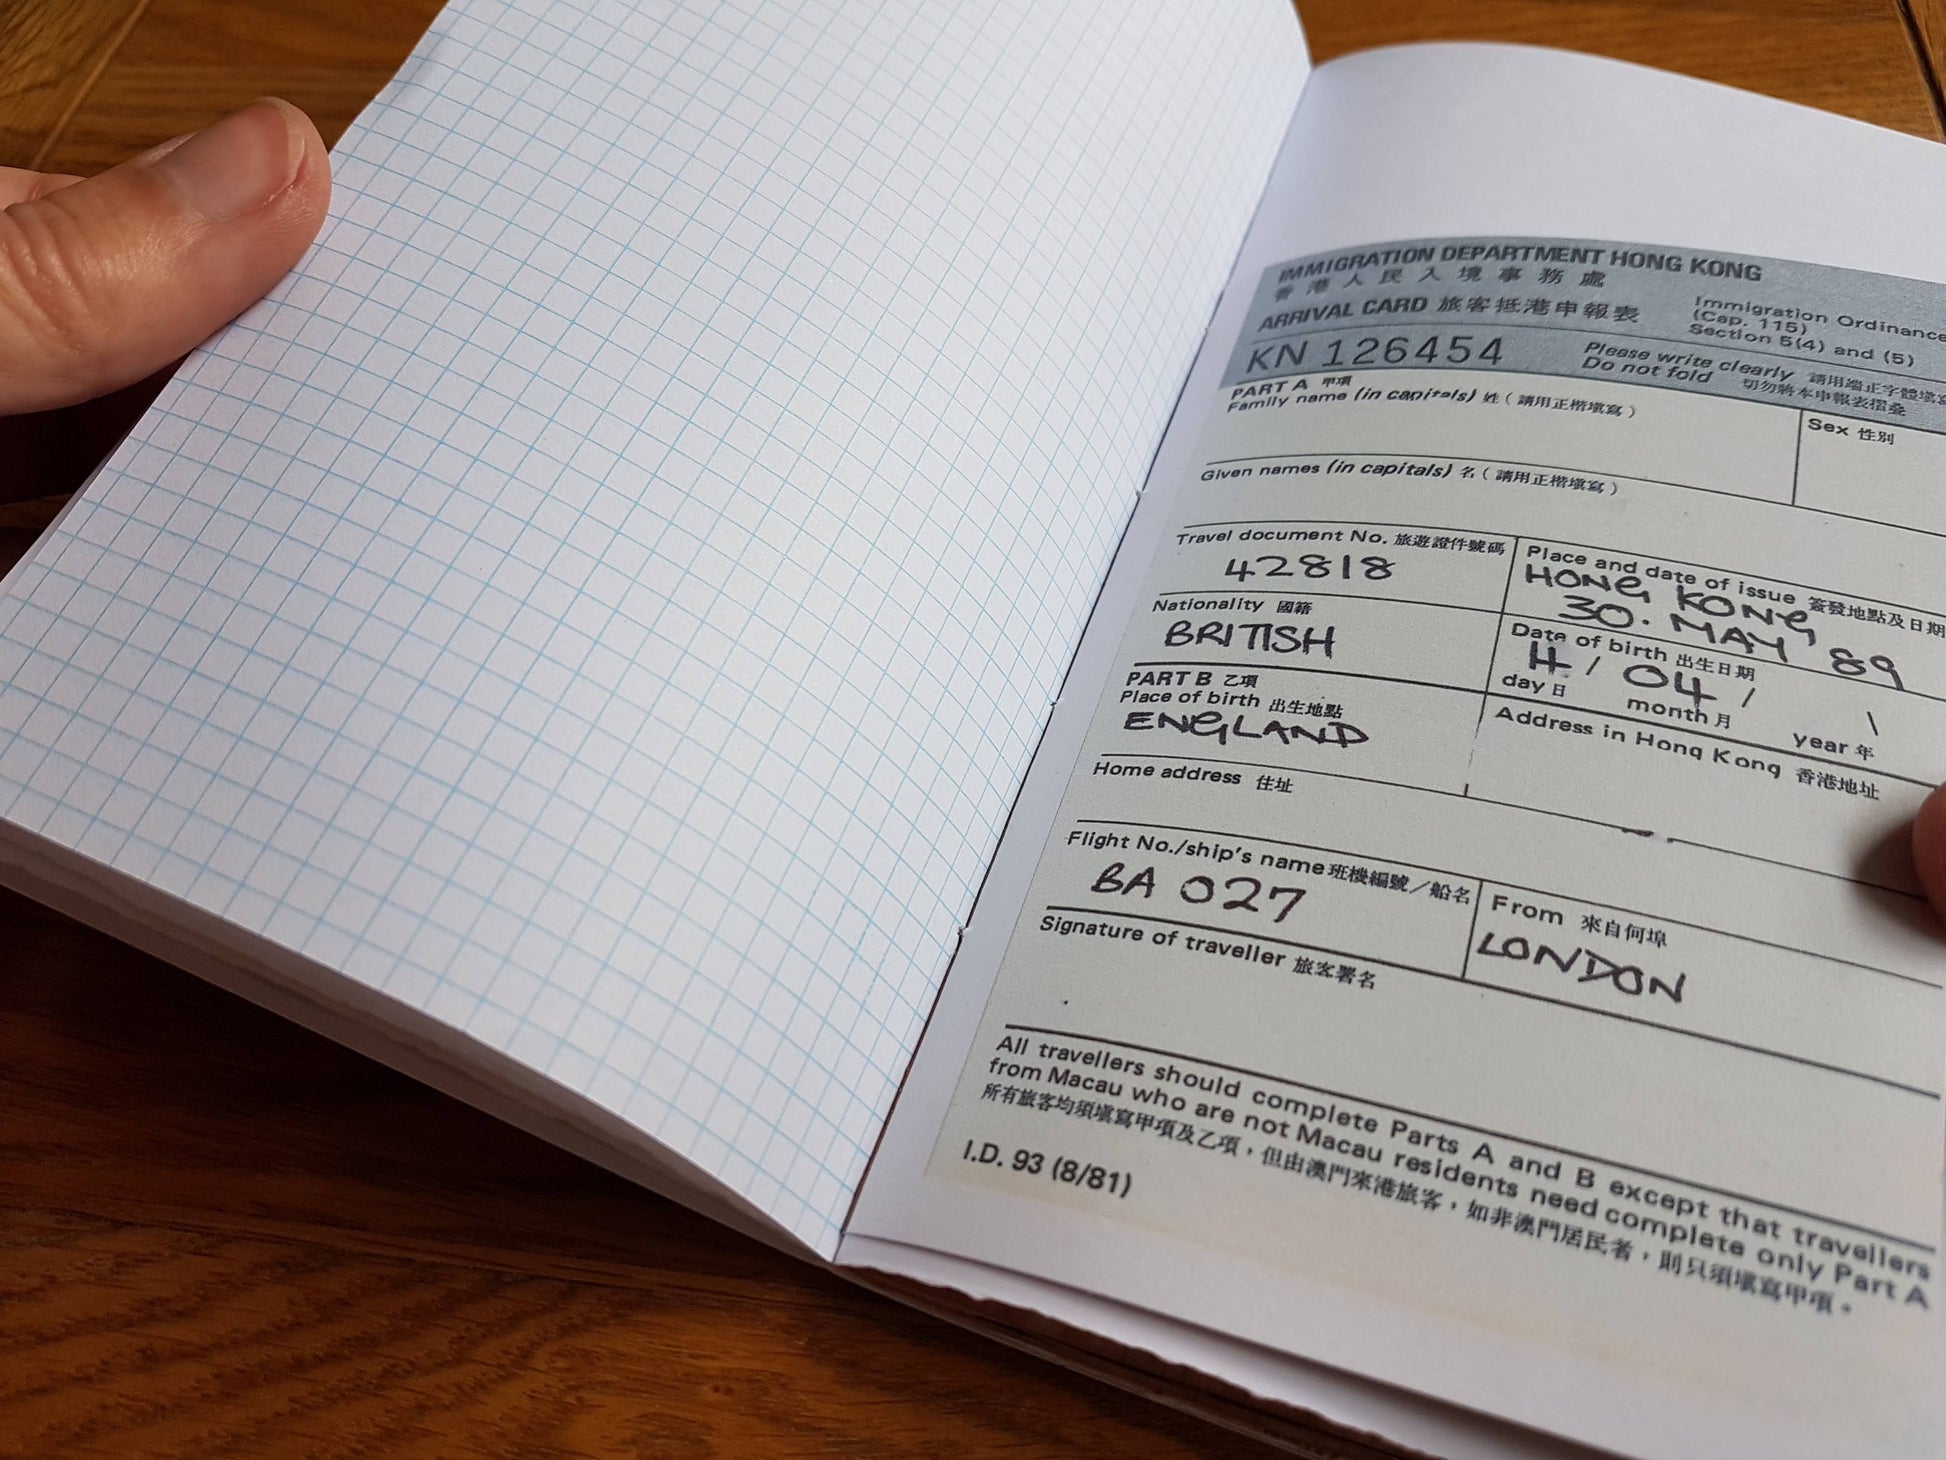 IMMIGRATION DEPARTMENT HONG KONG
香港人民入境事務處
ARRIVAL CARD 旅客抵港申報表
Immigration Ordinance
(Cap. 115)
Section 5(4) and (5)
KN 126454
Please write clearly 請用端正字體填寫
Do not fold 切勿將本申報表摺叠
PART A 甲項
Family name (in capitals) 姓(請用正楷填寫)
Sex 性別
Given names (in capitals) 名(請用正楷填寫)
Travel document No. 旅遊證件號碼
42818
Place and date of issue 簽發地點及日期
HONG KONG
30. MAY '89
Nationality 國籍
BRITISH
Date of birth 出生日期
4 / 04 /
day 日
month 月
year 年
PART B 乙項
Place of birth 出生地點
ENGLAND
Address in Hong Kong 香港地址
Home address 住址
Flight No./ship's name 班機編號/船名
BA 027
From 來自何埠
LONDON
Signature of traveller 旅客署名
All travellers should complete Parts A and B except that travellers
from Macau who are not Macau residents need complete only Part A
所有旅客均須填寫甲項及乙項,但由澳門來港旅客,如非澳門居民者,則只須填寫甲項。
I.D. 93 (8/81)